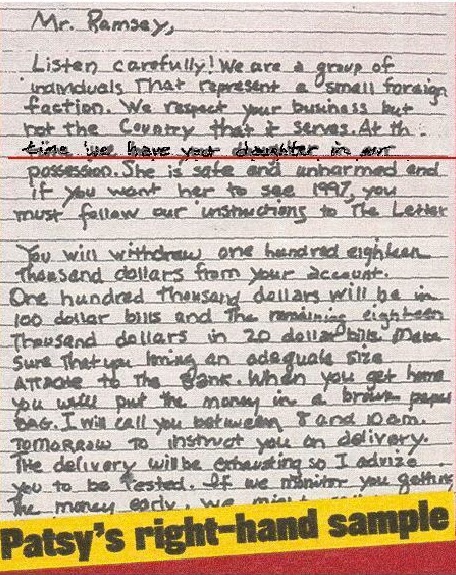 Mr. Ramsey,
Listen carefully! We are a group of
individuals That represent a small foreign
faction. We respect your business but
not the Country that it serves. At th
time we have your daughter in our
possession. She is safe and unharmed and
if you want her to see 1997, you
must follow our instructions to The Letter
You will withdraw one hundred eighteen
Thousand dollars from your account.
One hundred Thousand dollars will be in
100 dollar bills and The remaining eighteen
Thousand dollars in 20 dollar bills Make
Sure That you bring an adequate size
ATTACHE to The Bank. When you get home
you will put the money in a brown paper
BAG. I will call you between 8 and 10 am.
TOMORROW TO instruct you on delivery.
The delivery will be exhausting so I advize
you to be rested. If we monitor you getting
The money early, we might
Patsy's right-hand sample